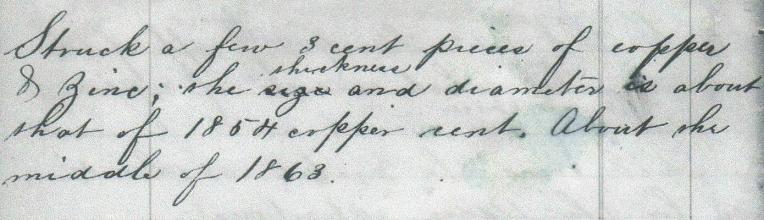 Struck a few 3 cent pieces of copper
& Zinc; the size thickness and diameter is about
that of 1854 copper cent. About the
middle of 1863.